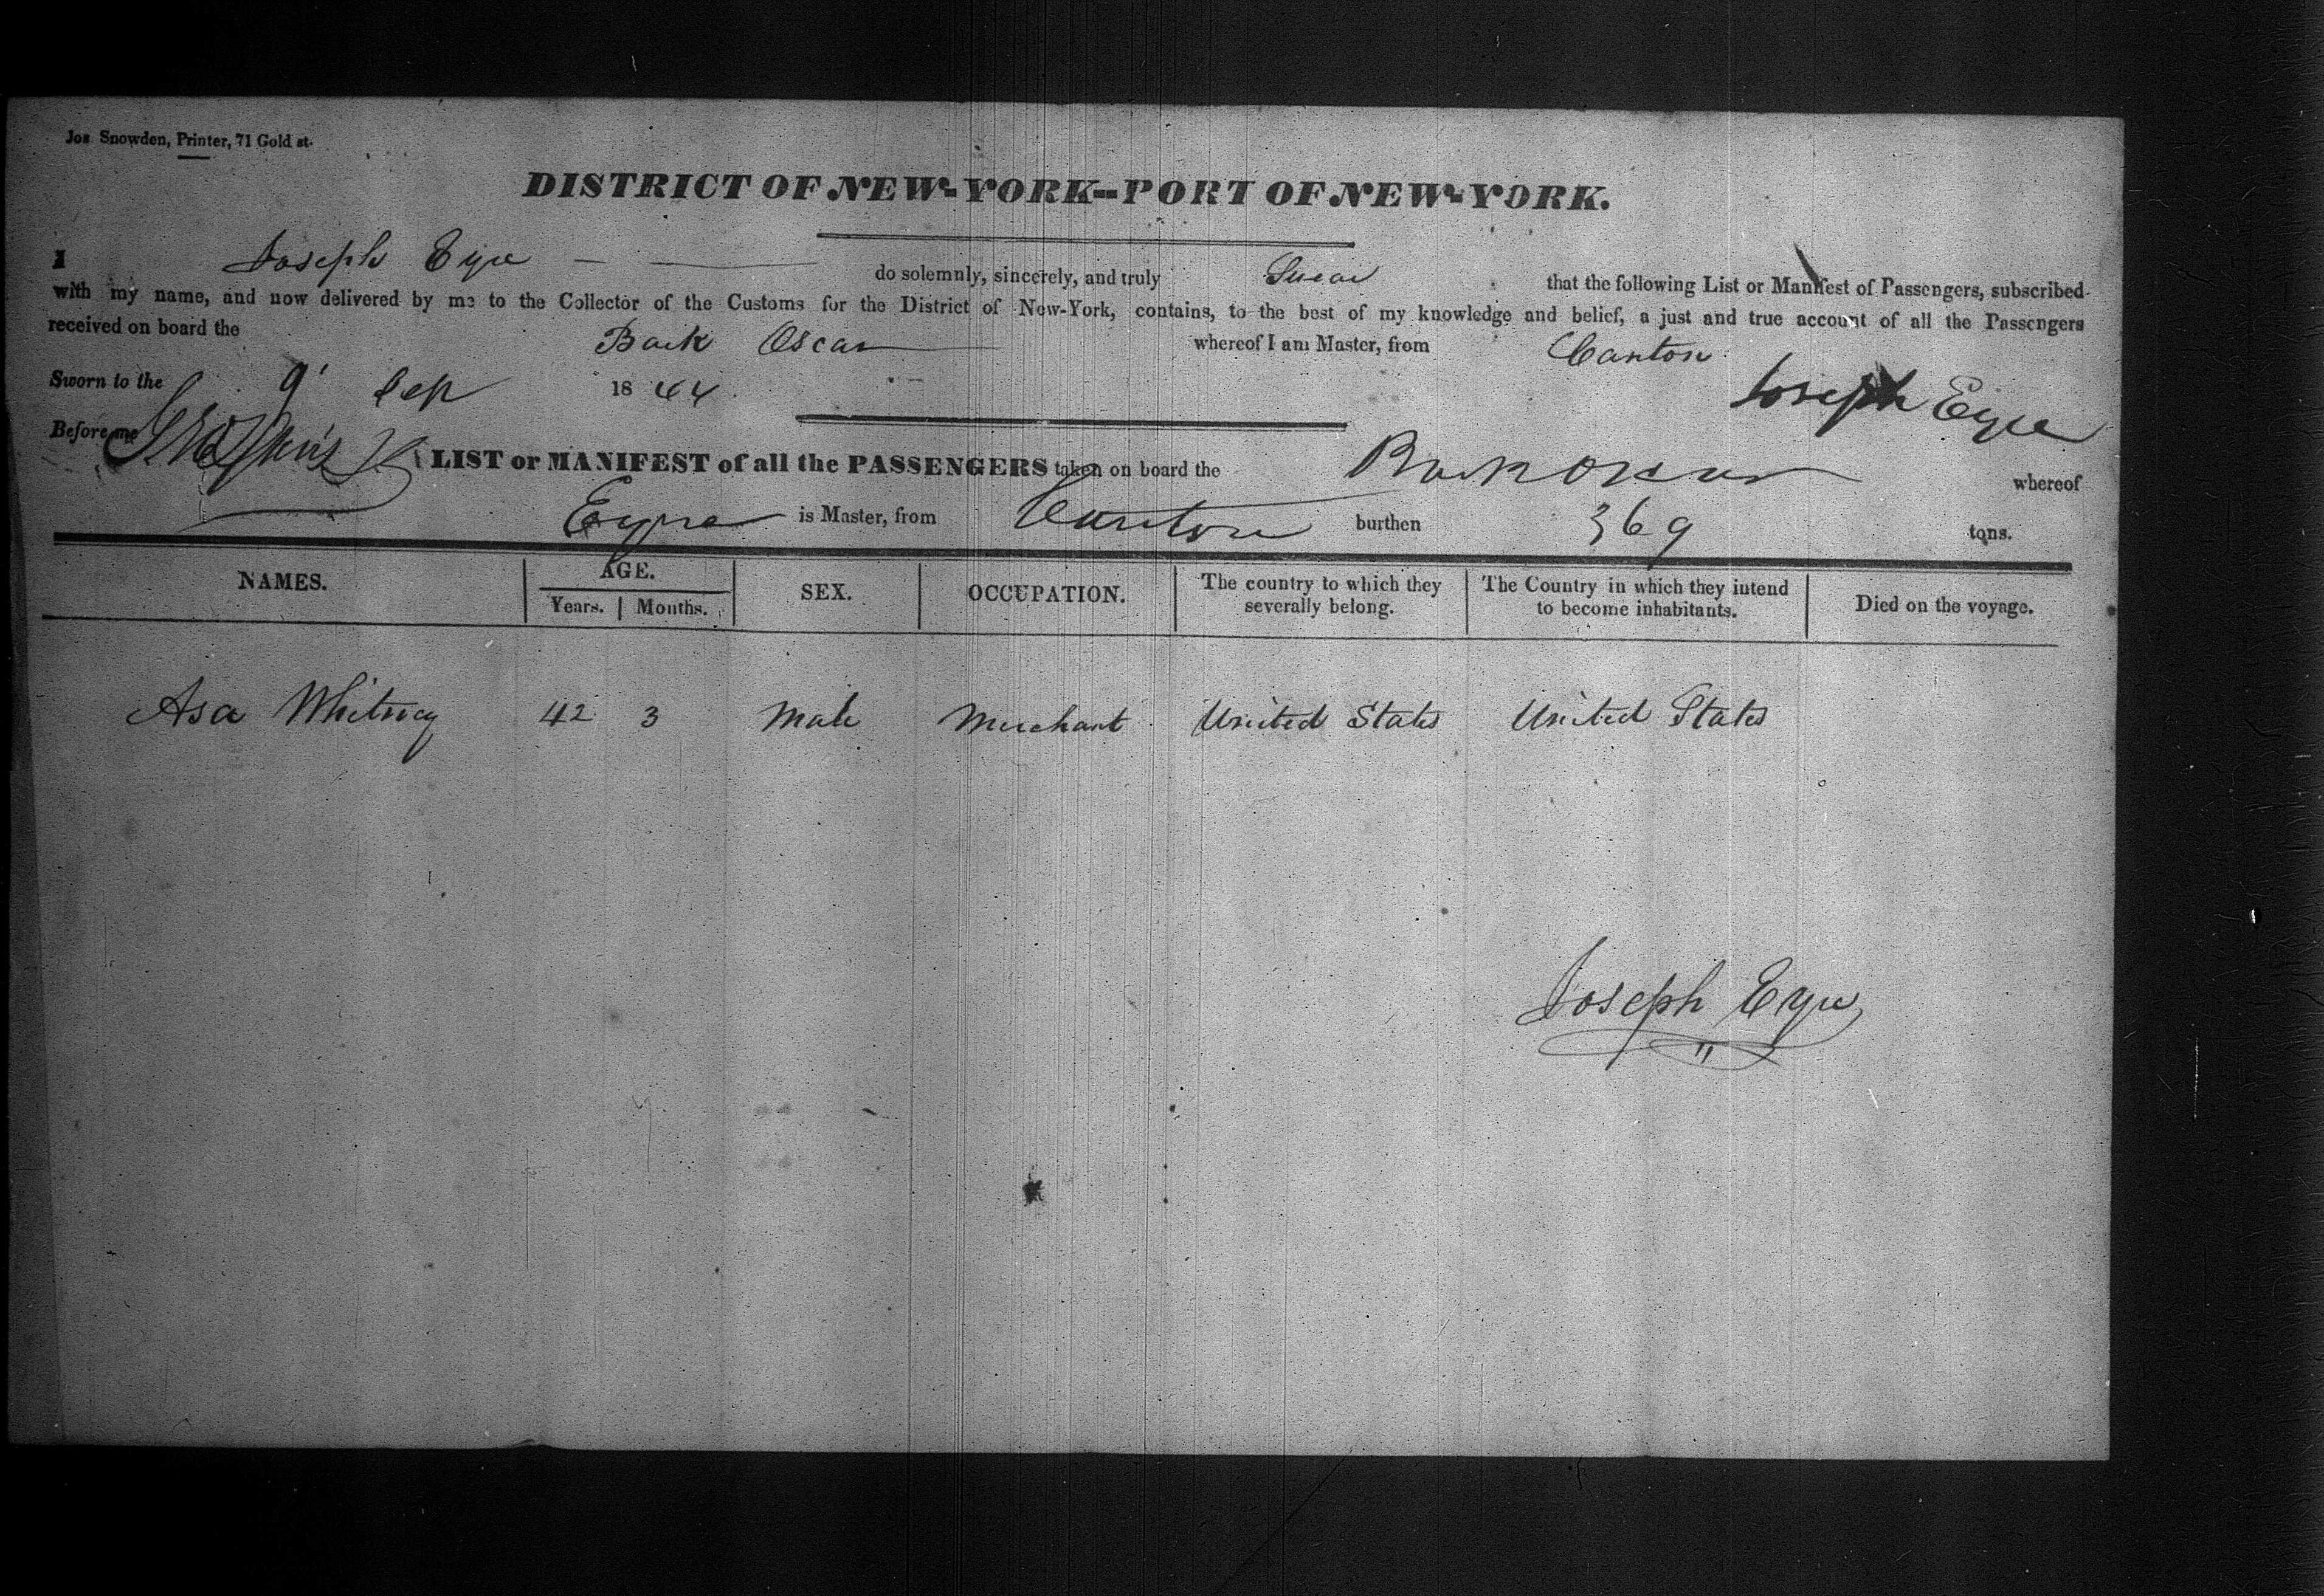 Jos Snowden, Printer, 71 Gold st.
DISTRICT OF NEW-YORK--PORT OF NEW-YORK.
I Joseph Eyre do solemnly, sincerely, and truly Swear that the following List or Manifest of Passengers, subscribed
with my name, and now delivered by me to the Collector of the Customs for the District of New-York, contains, to the best of my knowledge and belief, a just and true account of all the Passengers
received on board the Bark Oscar whereof I am Master, from Canton
Sworn to the 9' Sep 1844. Joseph Eyre
Before me
LIST or MANIFEST of all the PASSENGERS taken on board the Bark Oscar whereof
Eyre is Master, from Canton burthen 369 tons.
NAMES. AGE. SEX. OCCUPATION. The country to which they severally belong. The Country in which they intend to become inhabitants. Died on the voyage.
Years. Months.
Asa Whitney 42 3 Male Merchant United States United States
Joseph Eyre